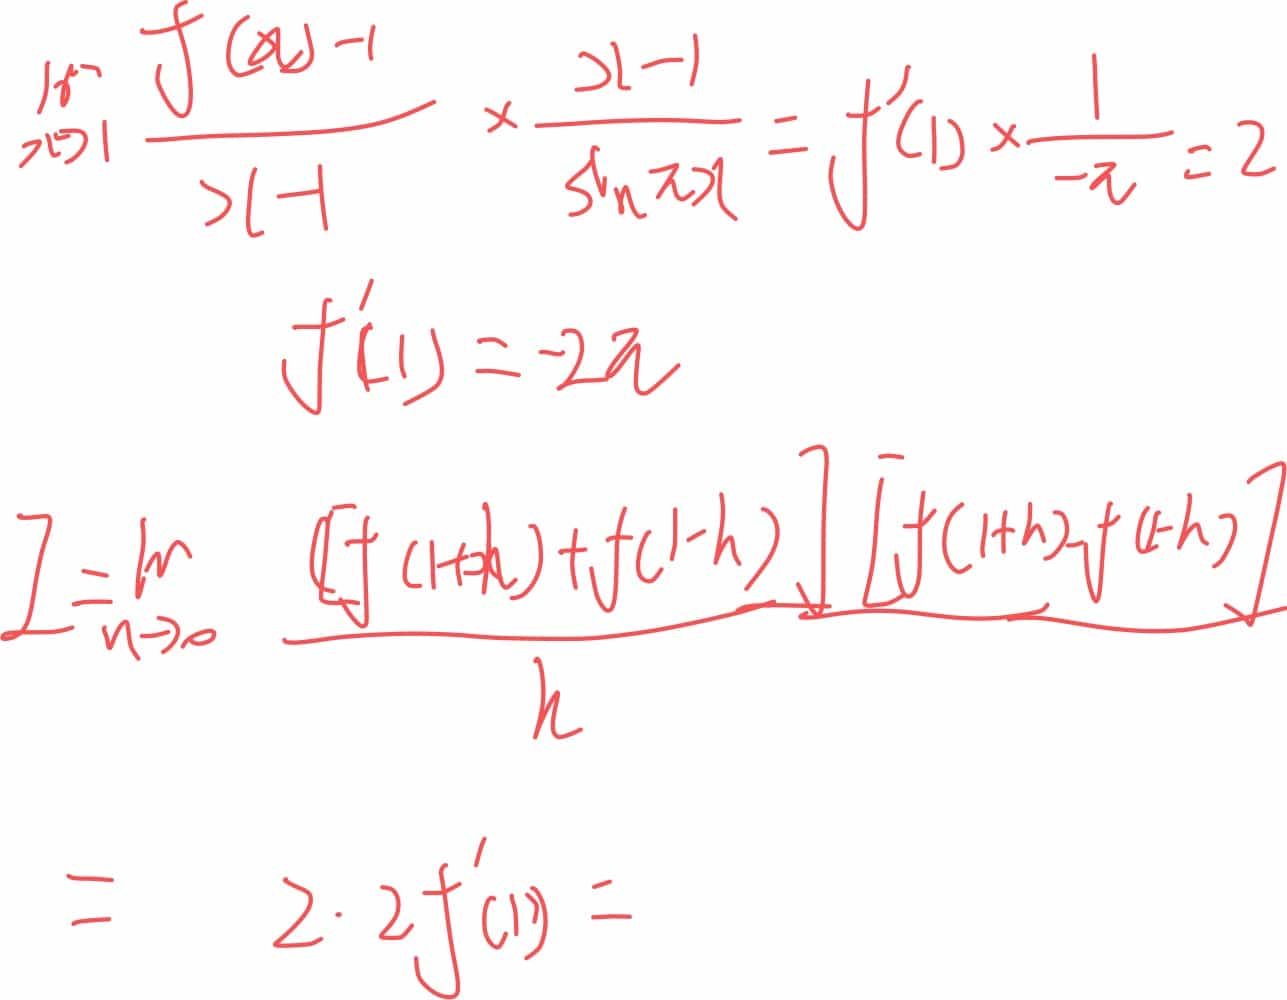 lim x→1 f(x)-1 / x-1 × x-1 / sin πx = f'(1) × 1 / -π = 2
f'(1) = -2π
I = lim n→0 [f(1+h)+f(1-h)][f(1+h)-f(1-h)] / h
= 2·2f'(1) =